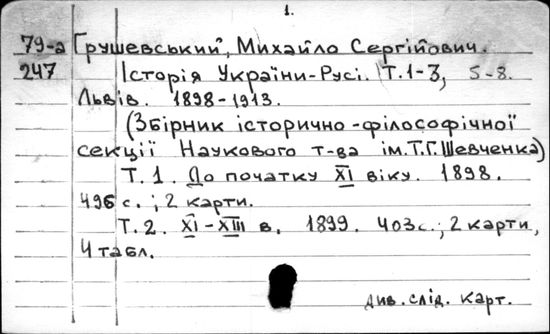 1.
79-а Грушевський, Михайло Сергійович.
247 Історія України-Русі. Т.1-3, 5-8.
Львів. 1898-1913.
(Збірник історично-фільософічної
секції Наукового т-ва ім.Т.Г.Шевченка)
Т.1. До початку XI віку. 1898.
496 с.; 2 карти.
Т.2. XI-XIII в. 1899. 403с.; 2 карти,
4 табл.
див. слід. карт.